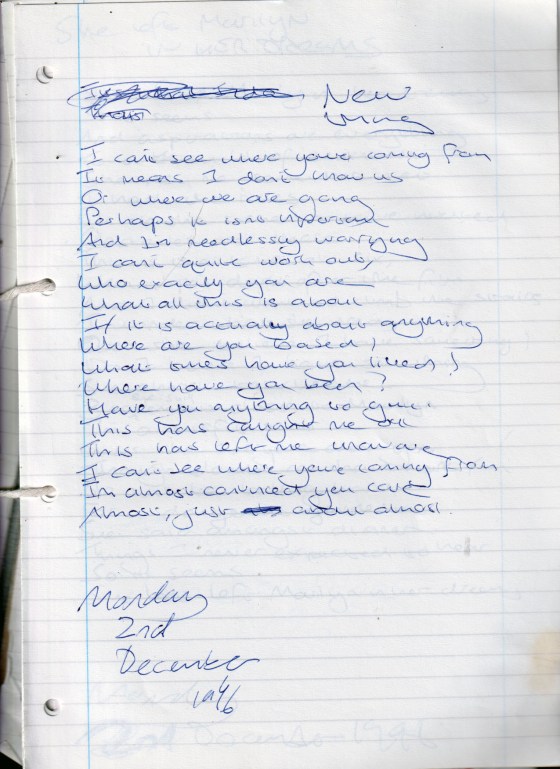 New
I can't see where you're coming from
It means I don't know us
Or where we are going
Perhaps it isn't important
And I'm needlessly worrying
I can't quite work out,
Who exactly you are
What all this is about
If it is actually about anything
Where are you based,
What have you lived,
Where have you been?
Have you anything to give.
This has caught me out
This has left me unaware
I can't see where you're coming from
I'm almost convinced you care
Almost, just about almost.
Monday
2nd
December
1996